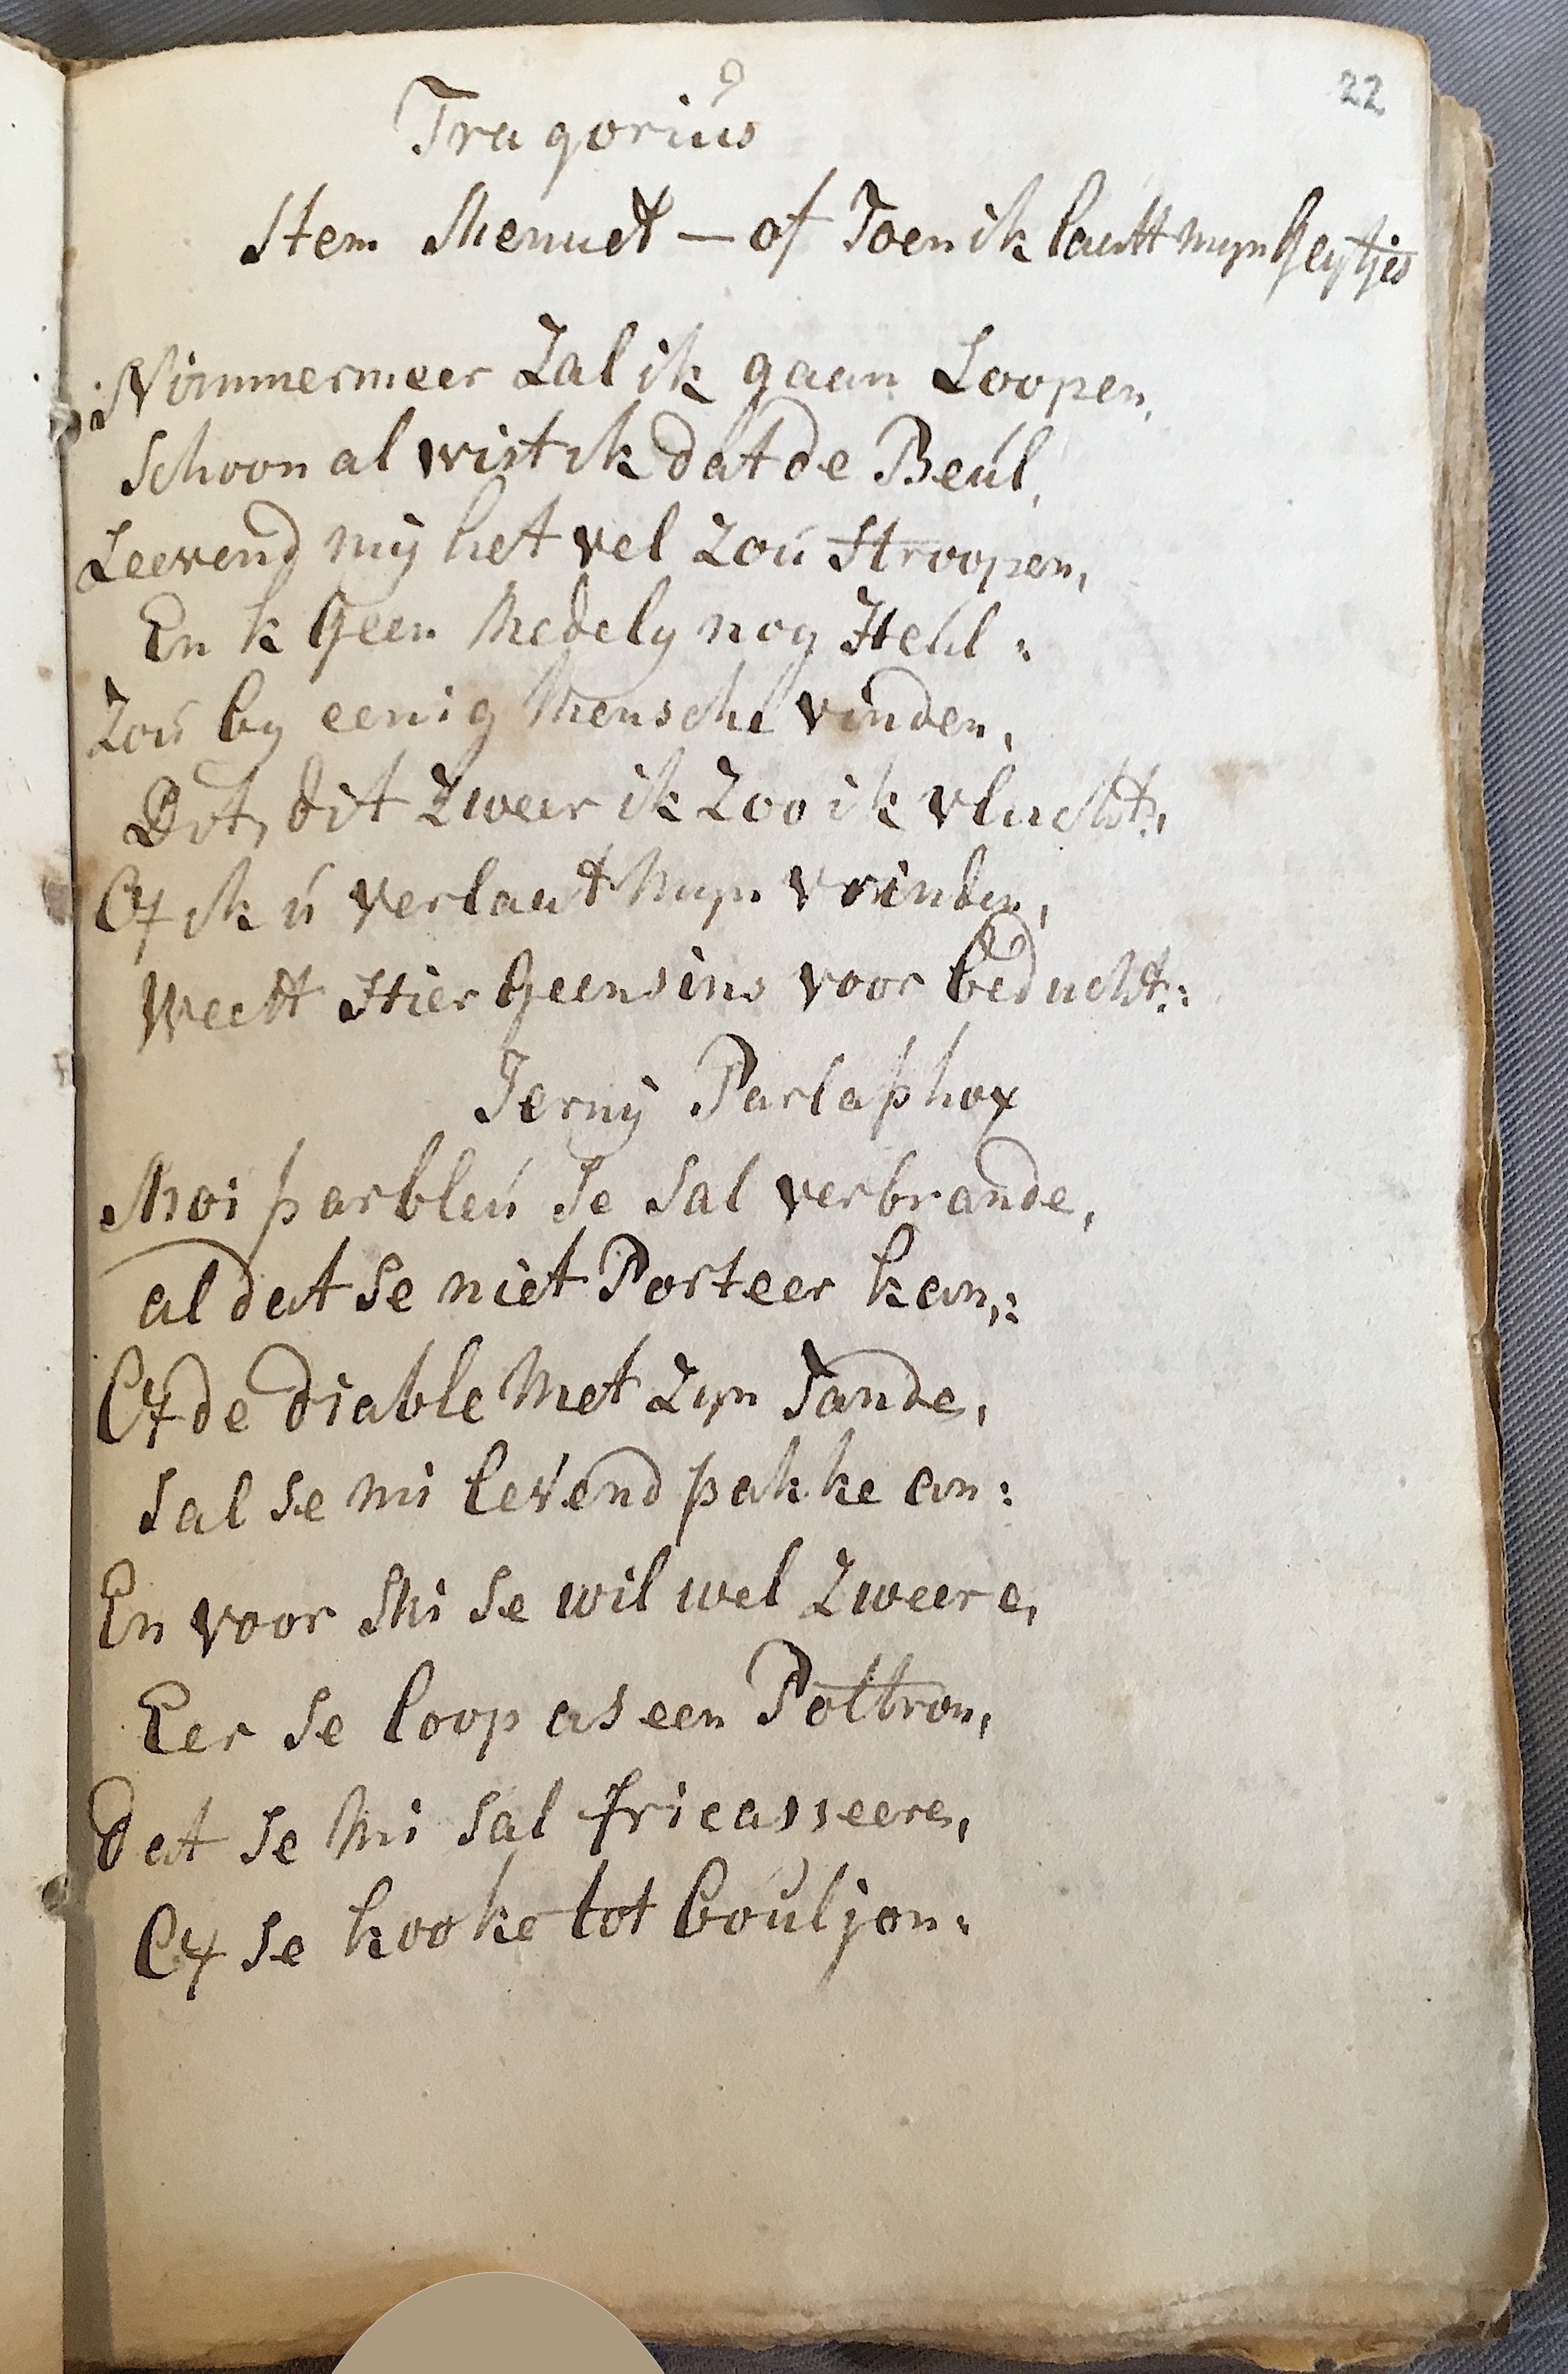 22
Tragorius
Stem Menuet — of Toen ik laestt myn Geytjes
Nimmermeer Zal ik gaan Loopen,
Schoon al wist ik dat de Beul,
Leevend mij het vel Zou Stroopen,
En k Geen Medely nog Heul :
Zou by eenig Mensche vinden,
Dit, dit Zweer ik Zoo ik vlucht,
Of ik u verlaat Myn vrinden,
Weest Hier Geensins voor beducht :
Jerny Parlaphox
Moi parbleu Se Sal verbrande,
al dat Se niet Porteer kan,:
Of de diable Met Zyn Tande,
Sal Se mi levend pakke an :
En voor Mi Se wil wel Zweere,
Eer Se loop as een Poltron,
dat Se Mi Sal fricasseere,
Of Se kooke tot bouljon :